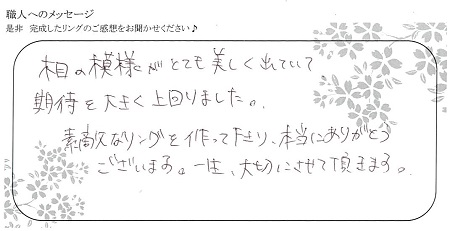 職人へのメッセージ
是非 完成したリングのご感想をお聞かせください♪
木目の模様がとても美しく出ていて
期待を大きく上回りました。
素敵なリングを作って下さり、本当にありがとう
ございます。一生、大切にさせて頂きます。